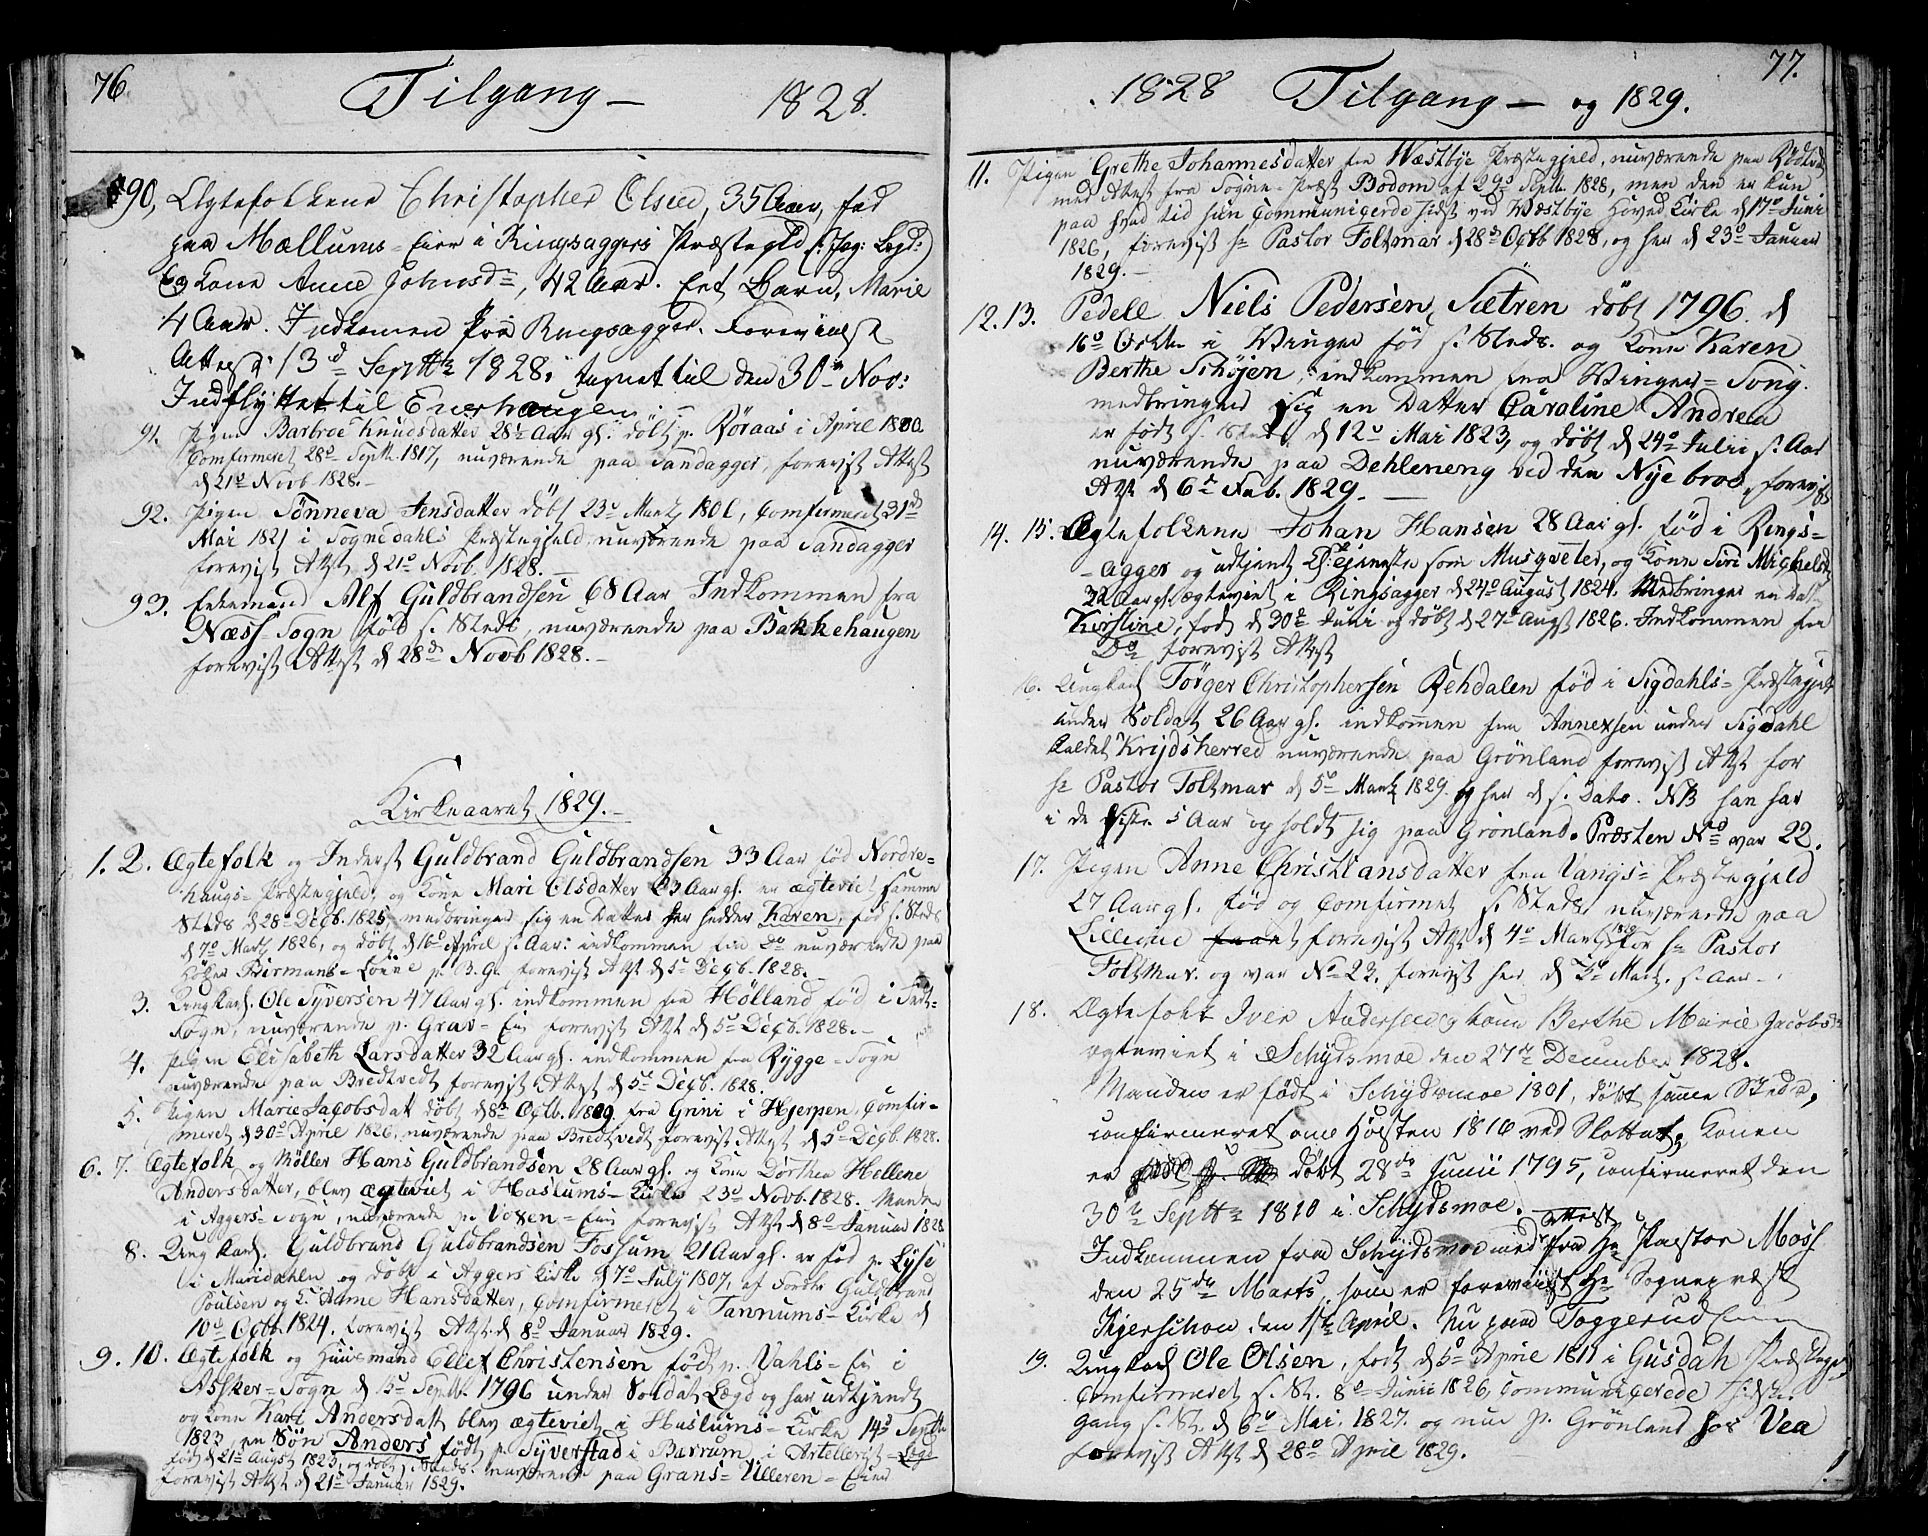 76.
Tilgang — 1828.
90, Ægtefolkene Christopher Olsen, 35 Aar, fød
paa Mællums-Eier i Ringsaggers Præstegld
Og Kone Anne Johnsd., 42 Aar. Eet Barn, Marie
4 Aar. Indkomen fra Ringsagger. Foreviist
Attest 13d Septbr 1828. Antegnet til den 30te Nov:
Indflyttet til Enerhaugen.
91. Pigen Barbroe Knudsdatter 28½ Aar gl. døbt p. Røraas i April 1800.
Comfirmeret 28de Septb. 1817, nuværende paa Sandagger, forevist Attest
d 21de Novb 1828.—
92. Pigen Sønneva Jensdatter døbt 23de Martz 1801, Comfirmeret 31te
Mai 1821 i Sognedahls Præstegjeld, nuværende paa Sandagger
forevist Attst d 21de Novb. 1828.—
93. Enkemand Alf Guldbrandsen 68 Aar Indkommen fra
Næss-Sogn fød s. Stede, nuværende paa Bakkehaugen
forevist Attest d 28de Novb 1828.—
Kirkeaaret 1829.—
1. 2. Ægtefolk og Inderst Guldbrand Guldbrandsen 33 Aar fød Nordre-
haugs-Præstegjeld, og Kone Mari Olsdatter Aar gl. er ægteviet samme
Steds d 28de Decb. 1825 medbringer sig en Datter her hedder Karen, fød s. Steds
d 7de Martz 1826, og døbt d 16de April s. Aar: indkommen fra Do nuværende paa
Birmans-Løkke p. B.G. forevist Attst d 5te Decb. 1828.—
3. Ungkarl. Ole Syversen 47 Aar gl. indkommen fra Hølland fød i
Sogn, nuværende p. Grav-Eie forevist Attst d 5te Decb. 1828.—
4. Pigen Elisabeth Larsdatter 32 Aar gl. indkommen fra Rygge-Sogn
nuværende paa Bredtvedt forevist Attst d 5te Decb. 1828.
5. Pigen Marie Jacobsdat døbt d 8de Octb. 1809 fra Grini i Hjerpen, Comfir-
meret d 30te April 1826, nuværende paa Bredtvedt forevist Attst d 5te Decb. 1828.
6. 7. Ægtefolk og Møller Hans Guldbrandsen 28 Aar gl. og Kone Dorthea Hellene
Andersdatter, blev ægteviet i Haslums-Kirke 23de Novb. 1828. Manden
i Aggers-Sogn, nuværende p. Voxen-Eie forevist Attst d 8de Januar 1828
8. Ungkarl. Guldbrand Guldbrandsen Fossum 21 Aar gl. er fød p. Lyse
i Maridahlen og døbt i Aggers Kirke d 7de July 1807, af Fordre Guldbrand
Poulsen og K. Anne Hansdatter, Comfirmeret i Tannums-Kirke d
10de Octb. 1824. forevist Attst. d 8de Januar 1829.
9. 10. Ægtefolk og Huusmand Ellef Christensen født p. Vahls-Eie i
Assker-Sogn d 15de Septb. 1796 under Soldat Lægd og har udtjendt
og Kone Kari Andersdatt blev ægteviet i Haslums-Kirke 14de Septb
1823 en Søn Anders født p. Syverstad i Barrum, i Artellerist-Legd
fød d 21de Augst 1823, og døbt s. Steds. nuværende paa Grans-Ulleren-Eier
forevist Attst d 21de Januar 1829.
77.
1828 Tilgang — og 1829.
11. Pigen Grethe Johannesdatter fra Wæstbye Præstegjeld, nuværende paa Rødtvedt
med Attest fra Sogne-Præst Bodom af 29de Septb. 1828, men den er kun
paa hvad tid hun Communicerde sidst ved Wæstbye Hoved Kirke d 17de Juni
1826, forevist Hr Pastor Foltmar d 28de Octb 1828, og her d 23de Januar
1829.—
12. 13. Pedell Niels Pedersen Sætren døbt 1796 d
16de Octbr i Winger fød s. Steds. og Kone Karen
Berthe Schøjen, indkommen fra Winger-Song.
medbringer sig en Datter Caroline Andrea
er født s. Steds d 12te Mai 1823, og døbt d 24de Julii s. Aar
nuværende paa Dehleneng ved den Nye broe, forevist
Attst d 6te Feb. 1829.—
14. 15. Ægtefolkene Johan Hansen 28 Aar gl. fød i Rings-
-agger og udtjent Tjeneste som Musqveter, og Kone Siri Michelsdt
32 Aar gl. ægteviet i Ringsagger d 24de August 1824. Medbringer en Datt
Kirstine, født d 30te Juni og døbt d 27de Augst 1826. Indkommen fra
Do forevist Attest
16. Ungkarl Tørger Christophersen Rehdalen fød i Sigdahls-Præstegjeld
under Soldat 26 Aar gl. indkomen fra Annexsen under Sigdahl
kaldet Krydsherred nuværende paa Grønland forevist Attst for
Hr Pastor Foltmar d 5te Martz 1829 og her d s. Dato. NB han har
i de siste 5 Aar opholdt sig paa Grønland. Præsten No var 22.
17. Pigen Anne Christiansdatter fra Vangs-Præstegjeld
27 Aar gl. fød og Comfirmet s. Steds. nuværende paa
Lilleeie forevist Attst d 4de Martz 1829 for Hr Pastor
Foltmar. og var No 23. forevist her d 5te Martz. s. Aar.
18. Ægtefolk Iver Andersen og kone Berthe Marie Jacobsd
ægteviet i Schydsmoe den 27de December 1828.
Manden er født i Schydsmoe 1801, døbt samme Steds,
confirmeret om Høsten 1816 ved Slottet, Konen
er døbt 28de Junii 1795, confirmeret den
30te Septbr 1810 i Schydsmoe.
Indkommen fra Schydsmoe med Attest fra Hr Pastor Moss
den 25de Marts, som er foreviist Hr Sognepræst
Kjerschou den 1ste April. Nu paa Toggerud Eie
19. Ungkarl Ole Olsen, født d 5te April 1811 i Gusdah Præstegjel
Comfirmeret s. St. 8de Junii 1826, Communicerede sidste
gang s. St. d 6te Mai. 1827. og nu p. Grønland hos Vea
forevist Attst d 28de April 1829.